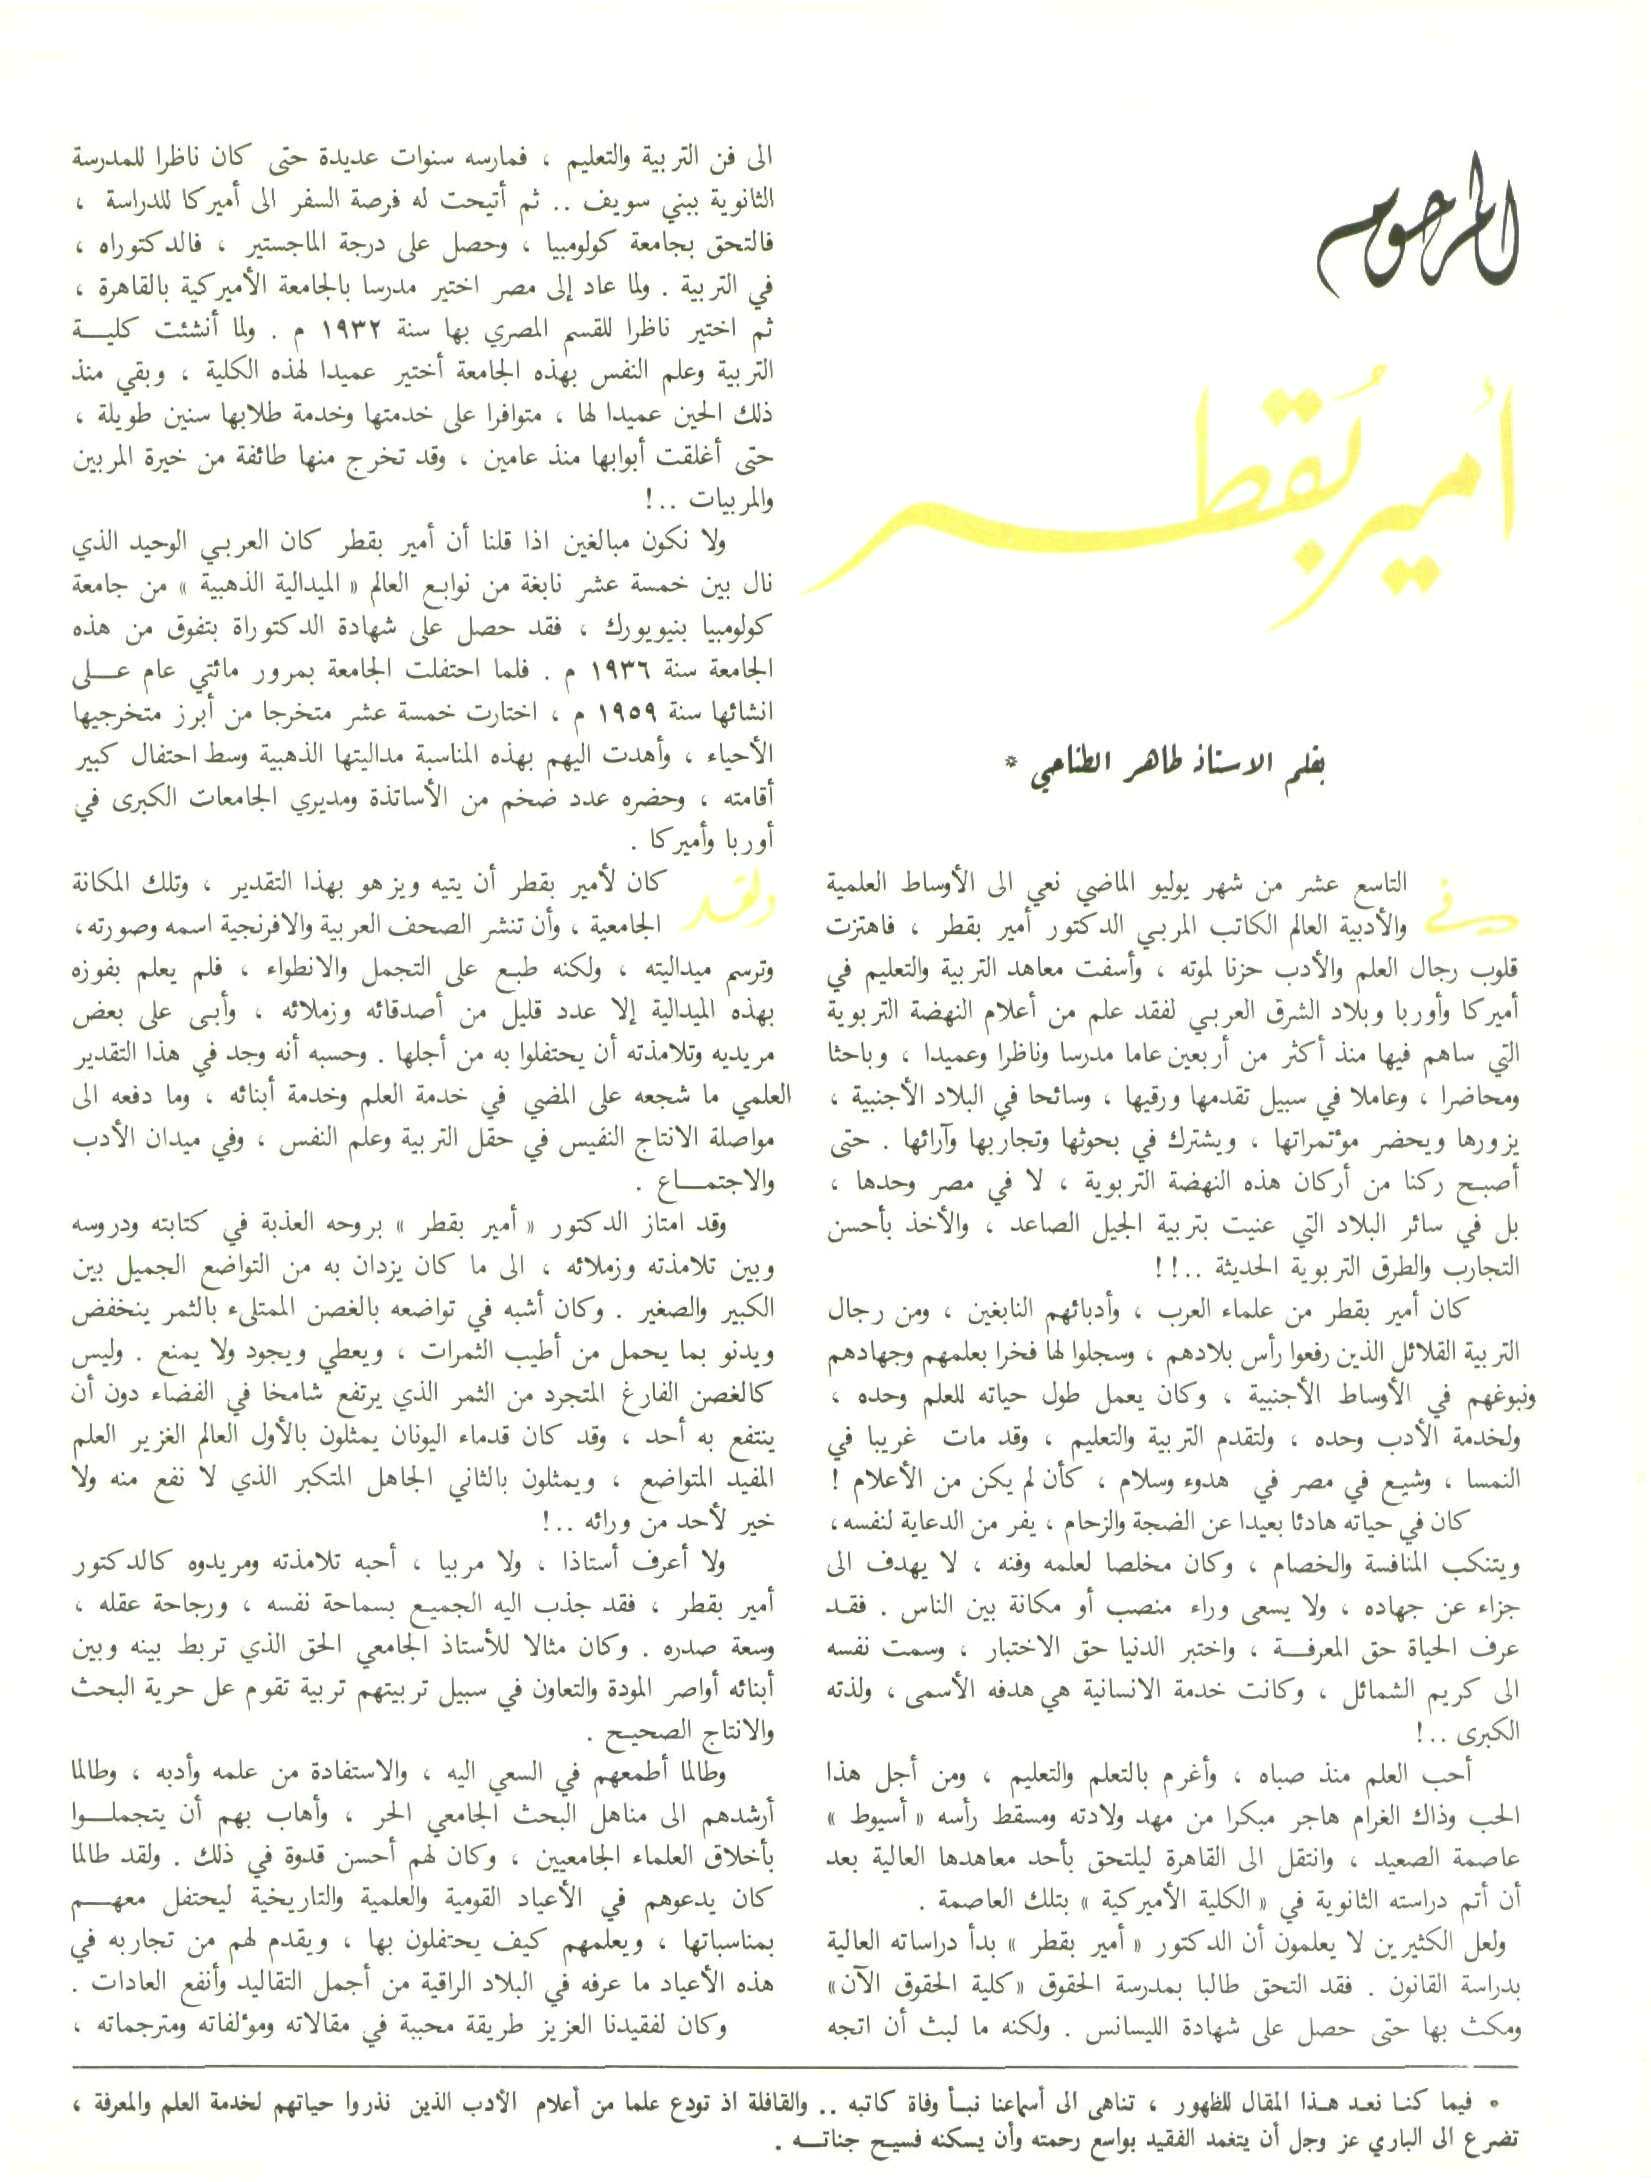 المرحوم
أمير بُقطر
بقلم الاستاذ طاهر الطناحي *
في التاسع عشر من شهر يوليو الماضي نعي الى الأوساط العلمية
والأدبية العالم الكاتب المربي الدكتور أمير بقطر ، فاهتزت
قلوب رجال العلم والأدب حزنا لموته ، وأسفت معاهد التربية والتعليم في
أميركا وأوربا وبلاد الشرق العربي لفقد علم من أعلام النهضة التربوية
التي ساهم فيها منذ أكثر من أربعين عاما مدرسا وناظرا وعميدا ، وباحثا
ومحاضرا ، وعاملا في سبيل تقدمها ورقيها ، وسائحا في البلاد الأجنبية ،
يزورها ويحضر مؤتمراتها ، ويشترك في بحوثها وتجاربها وآرائها . حتى
أصبح ركنا من أركان هذه النهضة التربوية ، لا في مصر وحدها ،
بل في سائر البلاد التي عنيت بتربية الجيل الصاعد ، والأخذ بأحسن
التجارب والطرق التربوية الحديثة ..!!
كان أمير بقطر من علماء العرب ، وأدبائهم النابغين ، ومن رجال
التربية القلائل الذين رفعوا رأس بلادهم ، وسجلوا لها فخرا بعلمهم وجهادهم
ونبوغهم في الأوساط الأجنبية ، وكان يعمل طول حياته للعلم وحده ،
ولخدمة الأدب وحده ، ولتقدم التربية والتعليم ، وقد مات غريبا في
النمسا ، وشيع في مصر في هدوء وسلام ، كأن لم يكن من الأعلام !
كان في حياته هادئا بعيدا عن الضجة والزحام ، يفر من الدعاية لنفسه،
ويتنكب المنافسة والخصام ، وكان مخلصا لعلمه وفنه ، لا يهدف الى
جزاء عن جهاده ، ولا يسعى وراء منصب أو مكانة بين الناس . فقد
عرف الحياة حق المعرفة ، واختبر الدنيا حق الاختبار ، وسمت نفسه
الى كريم الشمائل ، وكانت خدمة الانسانية هي هدفه الأسمى ، ولذته
الكبرى ..!
أحب العلم منذ صباه ، وأغرم بالتعلم والتعليم ، ومن أجل هذا
الحب وذاك الغرام هاجر مبكرا من مهد ولادته ومسقط رأسه « أسيوط »
عاصمة الصعيد ، وانتقل الى القاهرة ليلتحق بأحد معاهدها العالية بعد
أن أتم دراسته الثانوية في « الكلية الأميركية » بتلك العاصمة .
ولعل الكثيرين لا يعلمون أن الدكتور « أمير بقطر » بدأ دراساته العالية
بدراسة القانون . فقد التحق طالبا بمدرسة الحقوق «كلية الحقوق الآن»
ومكث بها حتى حصل على شهادة الليسانس . ولكنه ما لبث أن اتجه
الى فن التربية والتعليم ، فمارسه سنوات عديدة حتى كان ناظرا للمدرسة
الثانوية ببني سويف .. ثم أتيحت له فرصة السفر الى أميركا للدراسة ،
فالتحق بجامعة كولومبيا ، وحصل على درجة الماجستير ، فالدكتوراه ،
في التربية . ولما عاد إلى مصر اختير مدرسا بالجامعة الأميركية بالقاهرة ،
ثم اختير ناظرا للقسم المصري بها سنة ١٩٣٢ م . ولما أنشئت كلية
التربية وعلم النفس بهذه الجامعة أختير عميدا لهذه الكلية ، وبقي منذ
ذلك الحين عميدا لها ، متوافرا على خدمتها وخدمة طلابها سنين طويلة ،
حتى أغلقت أبوابها منذ عامين ، وقد تخرج منها طائفة من خيرة المربين
والمربيات ..!
ولا نكون مبالغين اذا قلنا أن أمير بقطر كان العربي الوحيد الذي
نال بين خمسة عشر نابغة من نوابع العالم « الميدالية الذهبية » من جامعة
كولومبيا بنيويورك ، فقد حصل على شهادة الدكتوراة بتفوق من هذه
الجامعة سنة ١٩٣٦ م . فلما احتفلت الجامعة بمرور مائتي عام على
انشائها سنة ١٩٥٩ م ، اختارت خمسة عشر متخرجا من أبرز متخرجيها
الأحياء ، وأهدت اليهم بهذه المناسبة مداليتها الذهبية وسط احتفال كبير
أقامته ، وحضره عدد ضخم من الأساتذة ومديري الجامعات الكبرى في
أوربا وأميركا .
ولقد كان لأمير بقطر أن يتيه ويزهو بهذا التقدير ، وتلك المكانة
الجامعية ، وأن تنشر الصحف العربية والافرنجية اسمه وصورته،
وترسم ميداليته ، ولكنه طبع على التجمل والانطواء ، فلم يعلم بفوزه
بهذه الميدالية إلا عدد قليل من أصدقائه وزملائه ، وأبى على بعض
مريديه وتلامذته أن يحتفلوا به من أجلها . وحسبه أنه وجد في هذا التقدير
العلمي ما شجعه على المضي في خدمة العلم وخدمة أبنائه ، وما دفعه الى
مواصلة الانتاج النفيس في حقل التربية وعلم النفس ، وفي ميدان الأدب
والاجتماع .
وقد امتاز الدكتور « أمير بقطر » بروحه العذبة في كتابته ودروسه
وبين تلامذته وزملائه ، الى ما كان يزدان به من التواضع الجميل بين
الكبير والصغير . وكان أشبه في تواضعه بالغصن الممتلىء بالثمر ينخفض
ويدنو بما يحمل من أطيب الثمرات ، ويعطي ويجود ولا يمنع . وليس
كالغصن الفارغ المتجرد من الثمر الذي يرتفع شامخا في الفضاء دون أن
ينتفع به أحد ، وقد كان قدماء اليونان يمثلون بالأول العالم الغزير العلم
المفيد المتواضع ، ويمثلون بالثاني الجاهل المتكبر الذي لا نفع منه ولا
خير لأحد من ورائه ..!
ولا أعرف أستاذا ، ولا مربيا ، أحبه تلامذته ومريدوه كالدكتور
أمير بقطر ، فقد جذب اليه الجميع بسماحة نفسه ، ورجاحة عقله ،
وسعة صدره . وكان مثالا للأستاذ الجامعي الحق الذي تربط بينه وبين
أبنائه أواصر المودة والتعاون في سبيل تربيتهم تربية تقوم عل حرية البحث
والانتاج الصحيح .
وطالما أطمعهم في السعي اليه ، والاستفادة من علمه وأدبه ، وطالما
أرشدهم الى مناهل البحث الجامعي الحر ، وأهاب بهم أن يتجملوا
بأخلاق العلماء الجامعيين ، وكان لهم أحسن قدوة في ذلك . ولقد طالما
كان يدعوهم في الأعياد القومية والعلمية والتاريخية ليحتفل معهم
بمناسباتها ، ويعلمهم كيف يحتفلون بها ، ويقدم لهم من تجاربه في
هذه الأعياد ما عرفه في البلاد الراقية من أجمل التقاليد وأنفع العادات .
وكان لفقيدنا العزيز طريقة محببة في مقالاته ومؤلفاته ومترجماته ،
* فيما كنا نعد هذا المقال للظهور ، تناهى الى أسماعنا نبأ وفاة كاتبه .. والقافلة اذ تودع علما من أعلام الأدب الذين نذروا حياتهم لخدمة العلم والمعرفة ،
تضرع الى الباري عز وجل أن يتغمد الفقيد بواسع رحمته وأن يسكنه فسيح جناته .